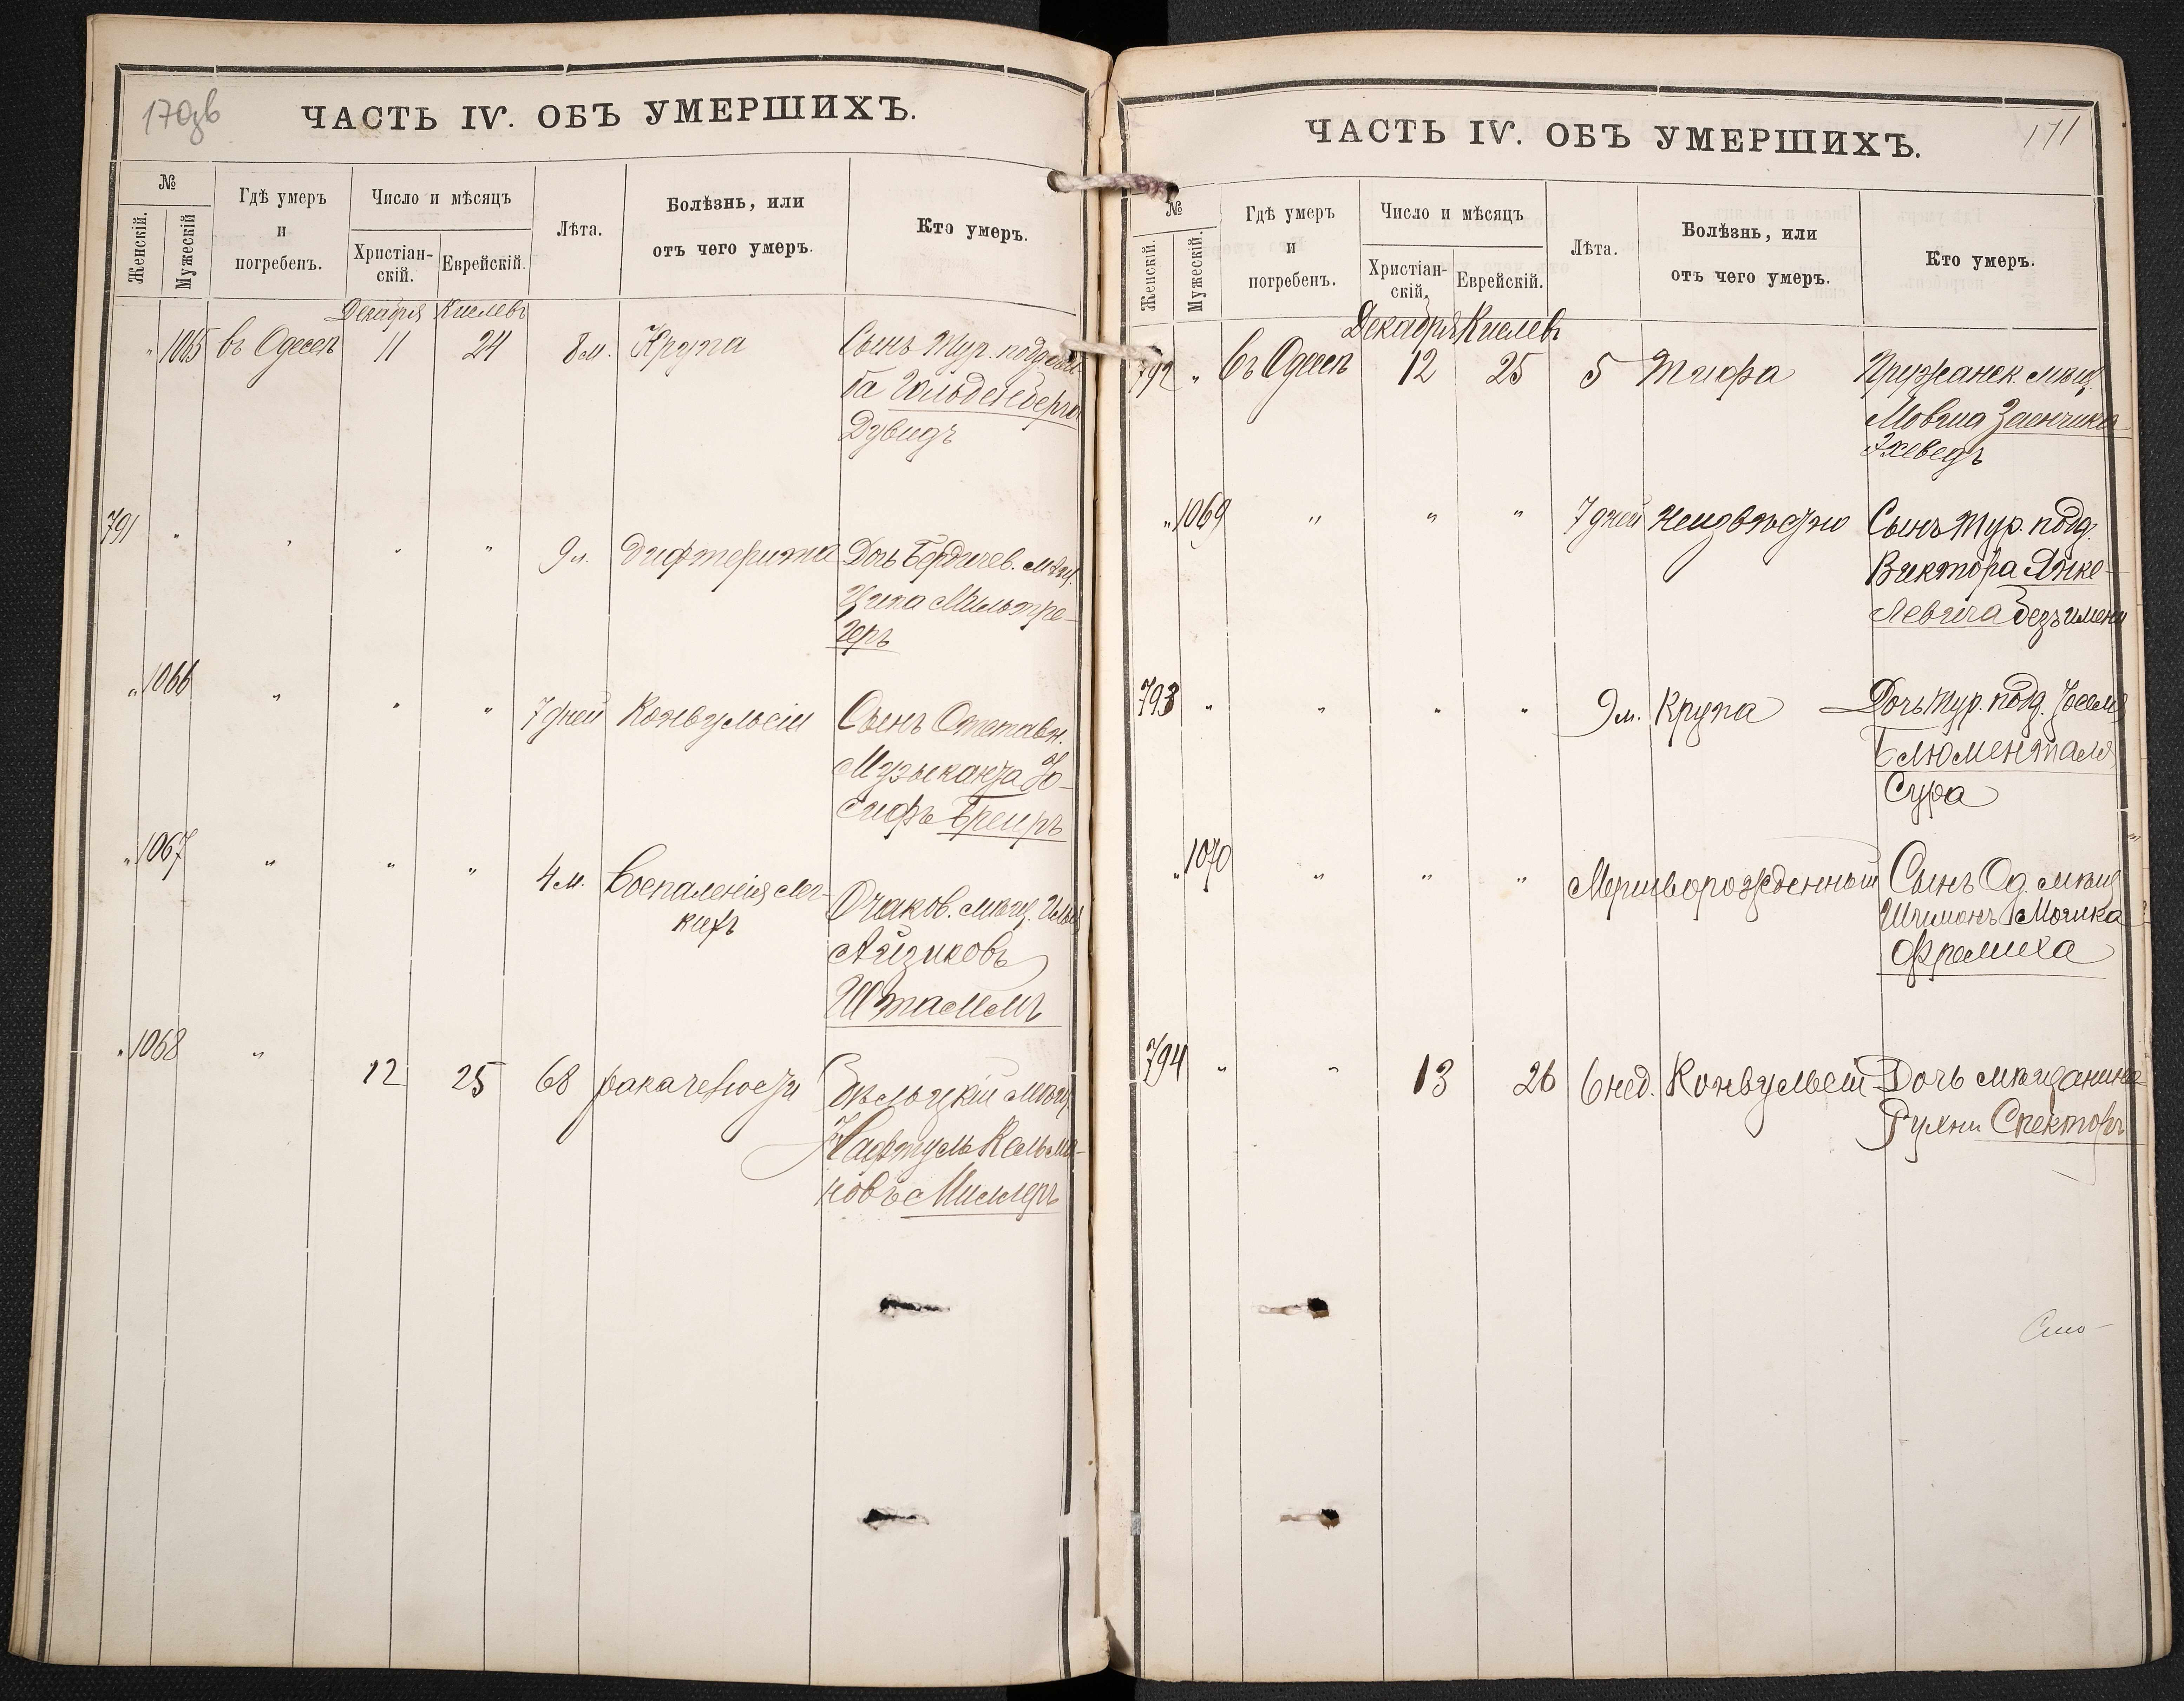 170зв
ЧАСТЬ IV. ОБЪ УМЕРШИХЪ.
№
Женскій.
Мужескій
Гдѣ умеръ
и
погребенъ.
Число и мѣсяцъ
Христіан-
скій.
Еврейскій.
Лѣта.
Болѣзнь, или
отъ чего умеръ.
Кто умеръ.
Декабря Кислевъ
" 1065 въ Одессѣ 11 24 8 м. Крупа Сынъ Тур. поддан
Гольденберга
Дувидъ
791 " " " " 9 л. дифтерита Дочь Бердичев. мѣщ.
Ципа Мильтре-
геръ
" 1066 " " " 7 дней Конвульсіи Сынъ Отставн.
Музыканта Іо-
сифъ Бреиръ
" 1067 " " " 4 м. Воспаленія лег-
кихъ
Очаков. мѣщ.
Айзиковъ
Штаммъ
" 1068 " 12 25 68 Бѣльцкій мѣщ.
Нафтуль Кельма-
новъ Миллеръ
ЧАСТЬ IV. ОБЪ УМЕРШИХЪ.
171
№
Женскій.
Мужескій.
Гдѣ умеръ
и
погребенъ.
Число и мѣсяцъ
Христіан-
скій.
Еврейскій.
Лѣта.
Болѣзнь, или
отъ чего умеръ.
Кто умеръ.
Декабря Кислевъ
792 " въ Одессѣ 12 25 5 Тифа Пружанск. мѣщ.
Мовша Заенчика
" 1069 " " " 7 дней Неизвѣстно Сынъ Тур. подд.
Виктора Янке-
левича безъ имени
793 " " " " 9 м. Крупа Дочь Тур. подд. Іоселя
Блюменталя
Сура
" 1070 " " " Мертворожденный Сынъ Од. мѣщ
Шимонъ Мошка
Фрелиха
794 " " 13 26 6 нед. Конвульсіи Дочь мѣщанина
Рухни Спекторъ